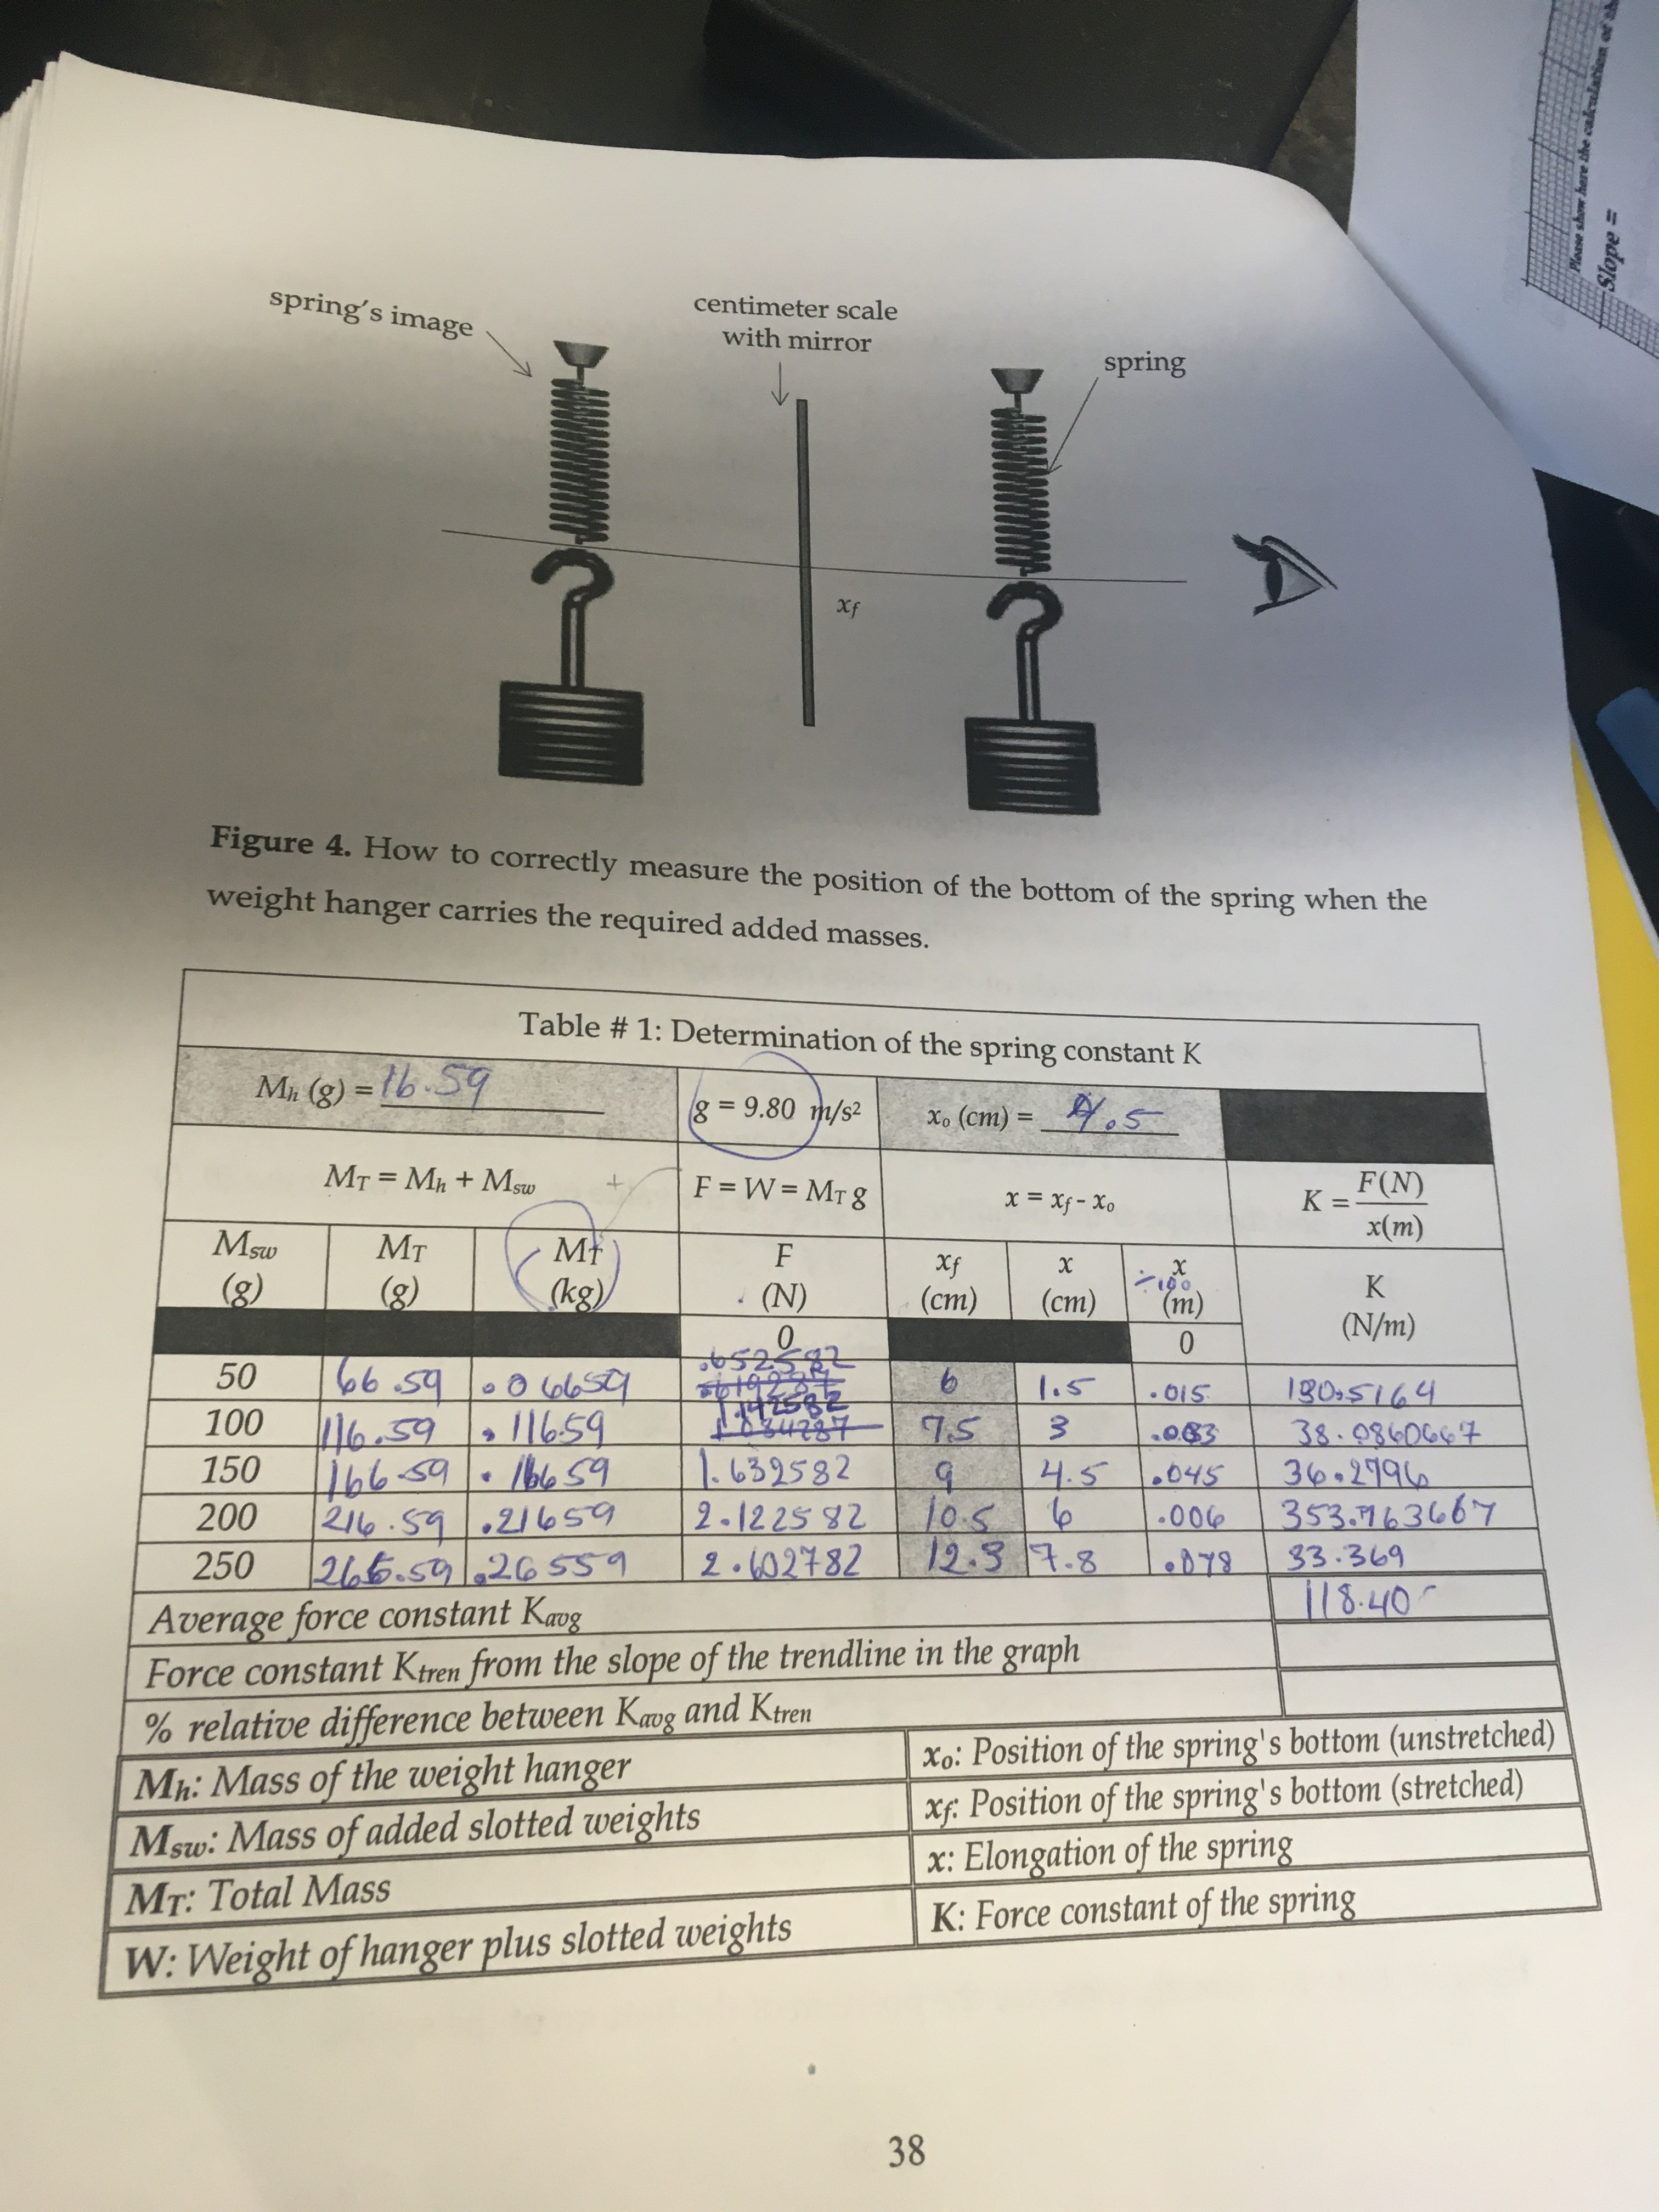 Please show here the calculation of
Slope =
spring's image
centimeter scale
with mirror
spring
xf
Figure 4. How to correctly measure the position of the bottom of the spring when the
weight hanger carries the required added masses.
Table # 1: Determination of the spring constant K
Mh (g) = 16.59 g = 9.80 m/s² xo (cm) = 4.5
MT = Mh + Msw + F = W = MT g x = xf - xo K = F(N)/x(m)
Msw (g) MT (g) MT (kg) F (N) xf (cm) x (cm) x ÷100 (m) K (N/m)
0 0
50 66.59 .06659 .652582 6 1.5 .015 130.5164
100 116.59 .11659 1.142582 1.034287 7.5 3 .003 38.0860667
150 166.59 .16659 1.632582 9 4.5 .045 36.2796
200 216.59 .21659 2.122582 10.5 6 .006 353.763667
250 265.59 .26559 2.602782 12.3 7.8 .078 33.369
Average force constant Kavg 118.40
Force constant Ktren from the slope of the trendline in the graph
% relative difference between Kavg and Ktren
Mh: Mass of the weight hanger xo: Position of the spring's bottom (unstretched)
Msw: Mass of added slotted weights xf: Position of the spring's bottom (stretched)
MT: Total Mass x: Elongation of the spring
W: Weight of hanger plus slotted weights K: Force constant of the spring
38